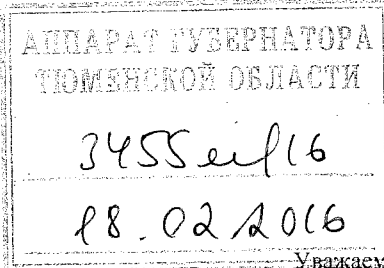 АППАРАТ ГУБЕРНАТОРА
ТЮМЕНСКОЙ ОБЛАСТИ
18.02.2016
Уважаем